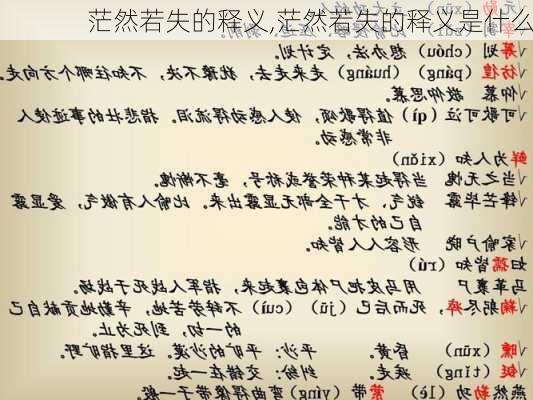 茫然若失的释义,茫然若失的释义是什么
√筹划（chóu）想办法，定计划。
√彷徨（páng）（huáng）走来走去，犹豫不决，不知往哪个方向走。
√仰慕 敬仰思慕。
√可歌可泣（qì）值得歌颂，使人感动得流泪。指悲壮的事迹使人
非常感动。
鲜为人知（xiǎn）
√当之无愧 当得起某种荣誉或称号，毫不惭愧。
√锋芒毕露 锐气、才干全部无显露出来。比喻人有傲气，爱显露
自己的才能。
√家喻户晓 形容人人皆知。
妇孺皆知（rú）
马革裹尸 用马皮把尸体包裹起来，指军人战死于战场。
√鞠躬尽瘁，死而后已（jū）（cuì）不辞劳苦地，辛勤地贡献自己
的一切，到死为止。
√曛（xūn） 昏黄。 平沙：平旷的沙漠。这里指旷野。
√铤（tǐng） 疾走。 纠纷：交错在一起。
燕然勒功（lè）萦带（yíng）弯曲得像带子一般